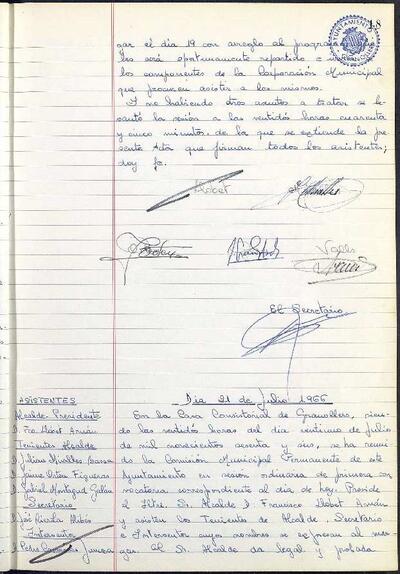 18
AYUNTAMIENTO
gar el día 19 con arreglo al programa
les será oportunamente repartido e
los componentes de la Corporación Municipal
que procuren asistir a los mismos.
Y no habiendo otros asuntos a tratar se le-
vantó la sesión a las veintidós horas cuarenta
y cinco minutos, de la que se extiende la pre-
sente Acta que firman todos los asistentes;
doy fe.
Llobet
El Secretario
ASISTENTES
Alcalde-Presidente
D. Fco. Llobet Arnán
Tenientes Alcalde
Secretario
Interventor
Día 21 de Julio 1966
En la Casa Consistorial de Granollers, sien-
do las veintidós horas del día veintiuno de Julio
de mil novecientos sesenta y seis, se ha reuni-
do la Comisión Municipal Permanente de este
Ayuntamiento en sesión ordinaria de primera con-
vocatoria correspondiente al día de hoy. Preside
el Iltre. Sr. Alcalde D. Francisco Llobet Arnán
y asisten los Tenientes de Alcalde, Secretario
e Interventor cuyos nombres se expresan al mar-
gen. El Sr. Alcalde da legal y pública